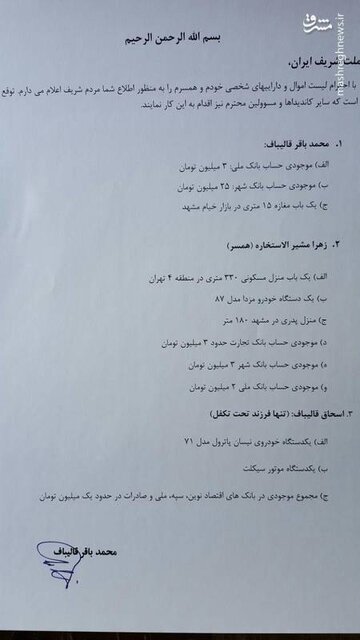 مشرق
mashreghnews.ir
بسم الله الرحمن الرحیم
ملت شریف ایران،
با احترام لیست اموال و داراییهای شخصی خودم و همسرم را به منظور اطلاع شما مردم شریف اعلام می دارم. توقع
است که سایر کاندیداها و مسوولین محترم نیز اقدام به این کار نمایند.
۱. محمد باقر قالیباف:
الف) موجودی حساب بانک ملی: ۳ میلیون تومان
ب) موجودی حساب بانک شهر: ۲۵ میلیون تومان
ج) یک باب مغازه ۱۵ متری در بازار خیام مشهد
۲. زهرا مشیر الاستخاره (همسر)
الف) یک باب منزل مسکونی ۳۳۰ متری در منطقه ۴ تهران
ب) یک دستگاه خودرو مزدا مدل ۸۷
ج) منزل پدری در مشهد ۱۸۰ متر
د) موجودی حساب بانک تجارت حدود ۳ میلیون تومان
ه) موجودی حساب بانک شهر ۳ میلیون تومان
و) موجودی حساب بانک ملی ۲ میلیون تومان
۳. اسحاق قالیباف: (تنها فرزند تحت تکفل)
الف) یکدستگاه خودروی نیسان پاترول مدل ۷۱
ب) یکدستگاه موتور سیکلت
ج) مجموع موجودی در بانک های اقتصاد نوین، سپه، ملی و صادرات در حدود یک میلیون تومان
محمد باقر قالیباف